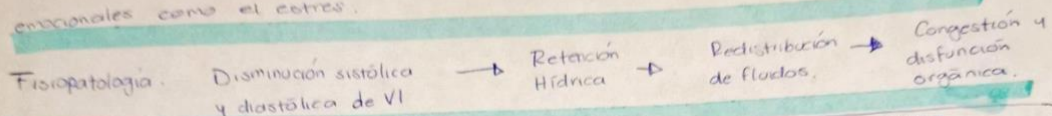 emocionales como el estres.
Fisiopatología. Disminución sistólica y diastólica de VI → Retención Hídrica → Redistribución de fluidos. → Congestión y disfunción orgánica.